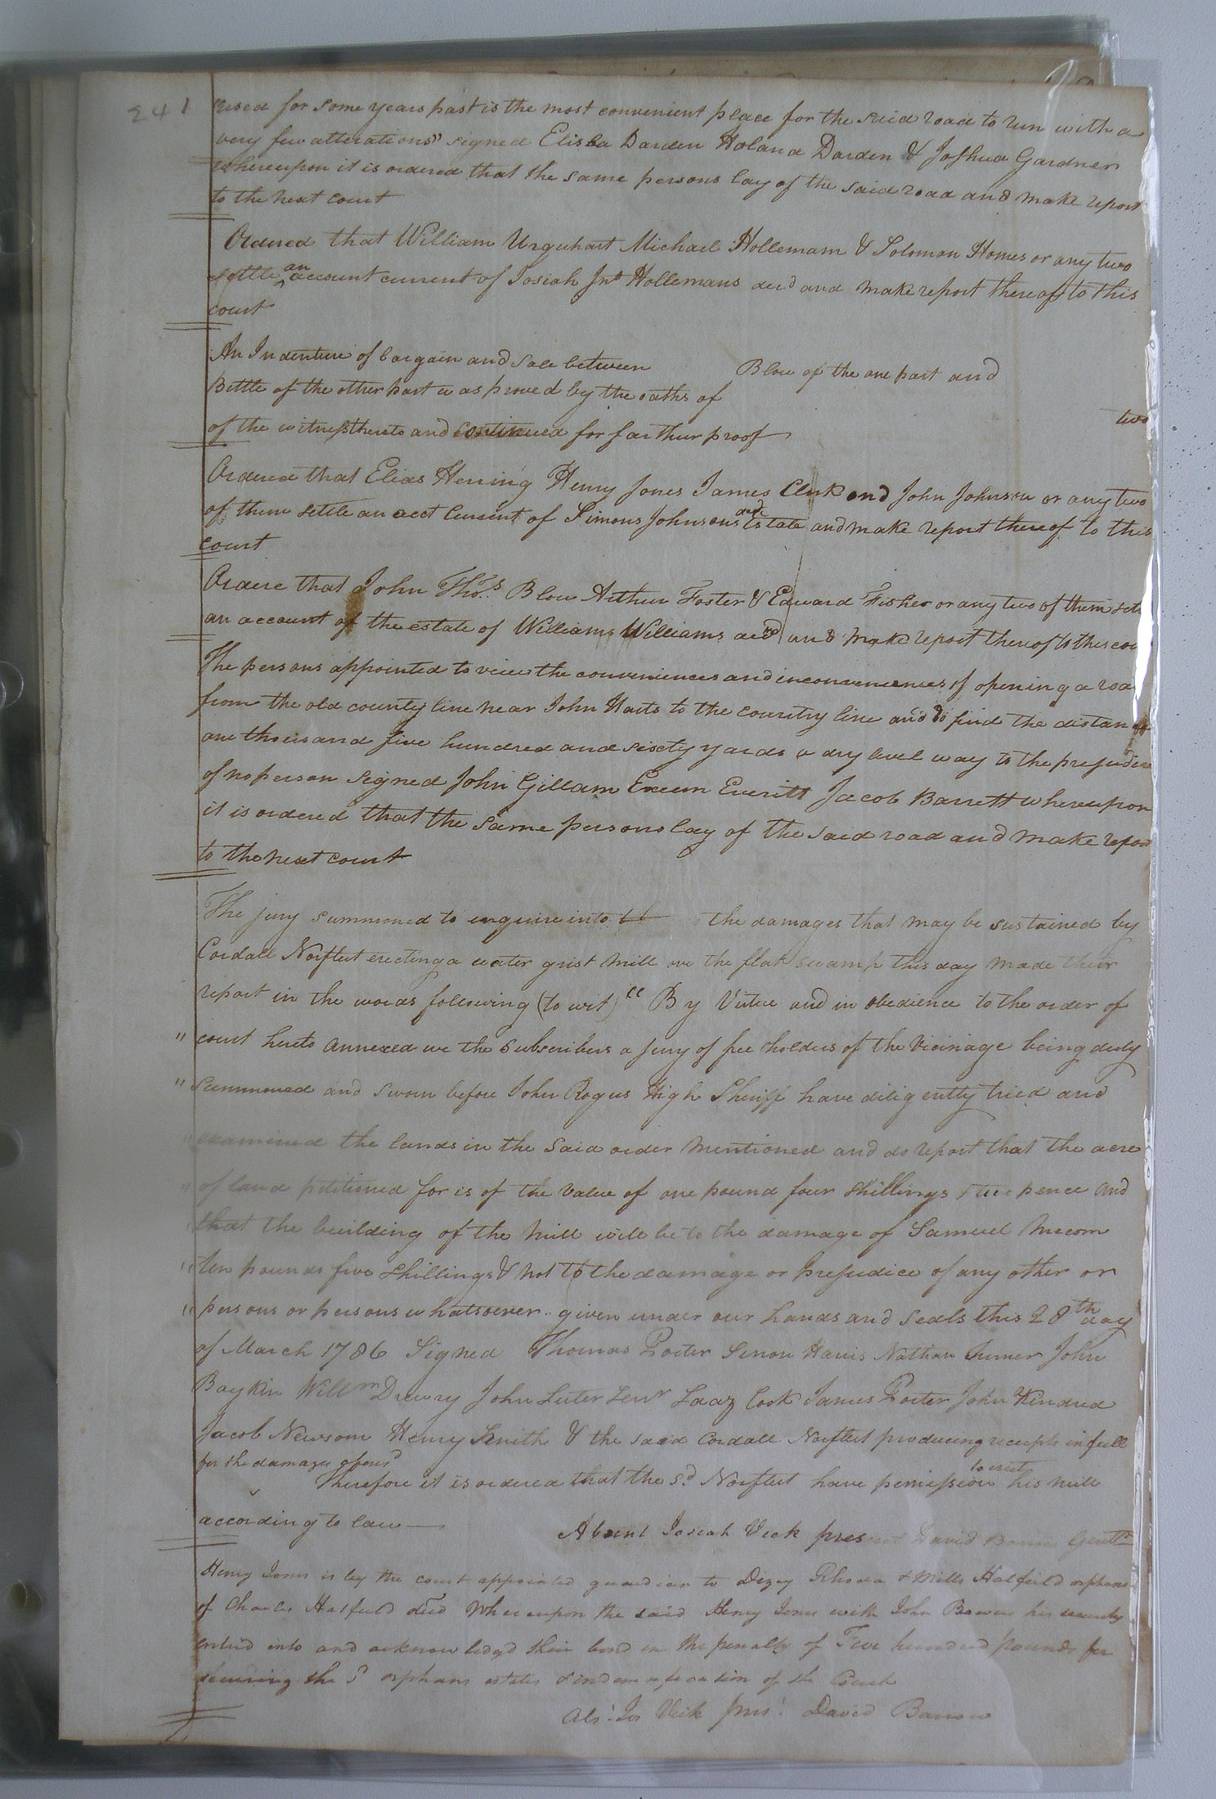 241
used for some years past is the most convenient place for the said road to run with a
very few alterations" signed Elisha Darden Holand Darden & Joshua Gardner
whereupon it is ordered that the same persons lay of the said road and make report
to the next court
Ordered that William Urquhart Michael Hollemam & Solomon Homes or any two
settle an account current of Josiah Jnᵒ Hollemans decd and make report thereof to this
court
An Indenture of bargain and sale between Blow of the one part and
Bittle of the other part was proved by the oaths of two
of the witness thereto and continued for farther proof
Ordered that Elias Herring Henry Jones James Clark and John Johnson or any two
of them settle an acct Current of Simons Johnsons decd Estate and make report thereof to this
court
Ordere that John Thoˢ Blow Arthur Foster & Edward Fisher or any two of them sett
an account of the estate of Williams Williams decd and make report thereof to this cou
The persons appointed to view the conveniences and inconveniences of opening a roa
from the old county line near John Harts to the country line and do find the distance
one thousand five hundred and sixty yards a dry level way to the prejudice
of no person signed John Gillam Exum Everitt Jacob Barrett whereupon
it is ordered that the same persons lay of the said road and make repor
to the next court
The jury summoned to enquire into the damages that may be sustained by
Cordall Norfleet erecting a water grist mill on the flat swamp this day made their
report in the words following (to wit) "By Virtue and in obedience to the order of
" court hereto annexed we the Subscribers a jury of free holders of the Vicinage being duly
" summoned and sworn before John Rogers High Sheriff have diligently tried and
" examined the lands in the said order mentioned and do report that the acre
" of land petitioned for is of the value of one pound four shillings pence and
" that the building of the mill will be to the damage of Samuel Mecom
" ten pounds five shillings & not to the damage or prejudice of any other or
" persons or persons whatsoever given under our hands and seals this 28th day
of March 1786 Signed Thomas Porter Simon Harris Nathan Turner John
Baykin Willm Drewry John Luter Senr Laaz Cook James Porter John Kindred
Jacob Newsom Henry Smith & the said Cordall Norfleet producing receipts in full
for the damages aforesd
Therefore it is ordered that the sd Norfleet have permission to erect his mill
according to law
Absent Josiah Vick present David Barrow Gentn
Henry Jones is by the court appointed guardian to Dizey Rhoda & Mills Hatfield orphans
of Charles Hatfield decd Whereupon the said Henry Jones with John Bowers his security
entered into and acknowledgd their bond in the penalty of Five hundred pounds for
securing the sd orphans estates & indemnification of the Court
Abst Jos Vick prest David Barrow